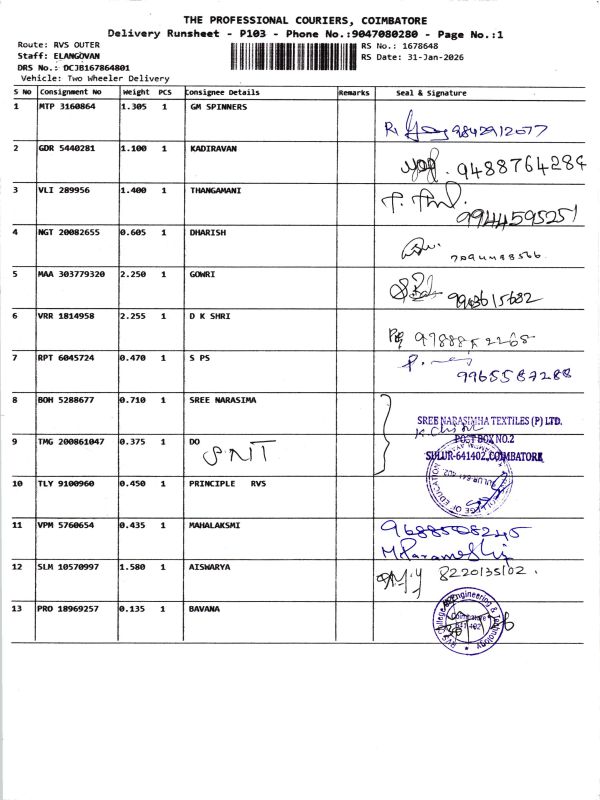 THE PROFESSIONAL COURIERS, COIMBATORE
Delivery Runsheet - P103 - Phone No.:9047080280 - Page No.:1
Route: RVS OUTER
RS No.: 1678648
Staff: ELANGOVAN
RS Date: 31-Jan-2026
DRS No.: DCJB167864801
Vehicle: Two Wheeler Delivery
S No Consignment No Weight PCS Consignee Details Remarks Seal & Signature
1 MTP 3160864 1.305 1 GM SPINNERS
9842912077
2 GDR 5440281 1.100 1 KADIRAVAN
9488764284
3 VLI 289956 1.400 1 THANGAMANI
9944595251
4 NGT 20082655 0.605 1 DHARISH
5 MAA 303779320 2.250 1 GOWRI
9943615682
6 VRR 1814958 2.255 1 D K SHRI
7 RPT 6045724 0.470 1 S PS
9965587288
8 BOH 5288677 0.710 1 SREE NARASIMA
SREE NARASIMHA TEXTILES (P) LTD.
POST BOX NO.2
9 TMG 200861047 0.375 1 DO
SNIT
SULUR-641402, COIMBATORE
COLLEGE OF EDUCATION
SULUR-641 402
10 TLY 9100960 0.450 1 PRINCIPLE RVS
11 VPM 5760654 0.435 1 MAHALAKSMI
9688508245
12 SLM 10570997 1.580 1 AISWARYA
8220135102.
13 PRO 18969257 0.135 1 BAVANA
RVS College of Engineering & Technology